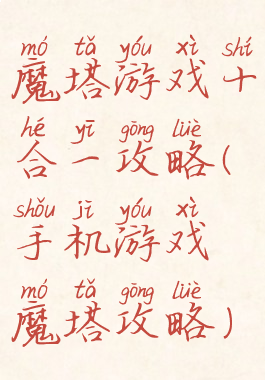 mó tǎ yóu xì shí
魔塔游戏十
hé yī gōng lüè
合一攻略(
shǒu jī yóu xì
手机游戏
mó tǎ gōng lüè
魔塔攻略)